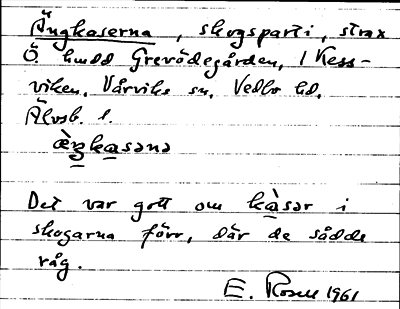 Ängkaserna, skogsparti, strax
Ö. hudd Grevödegården, i Kess-
viken. Vårviks sn. Vedbo hd.
Älvsb. l.
æ̀ŋkasənə
Det var gott om kàsər i
skogarna förr, där de sådde
råg.
E. Rosell 1961